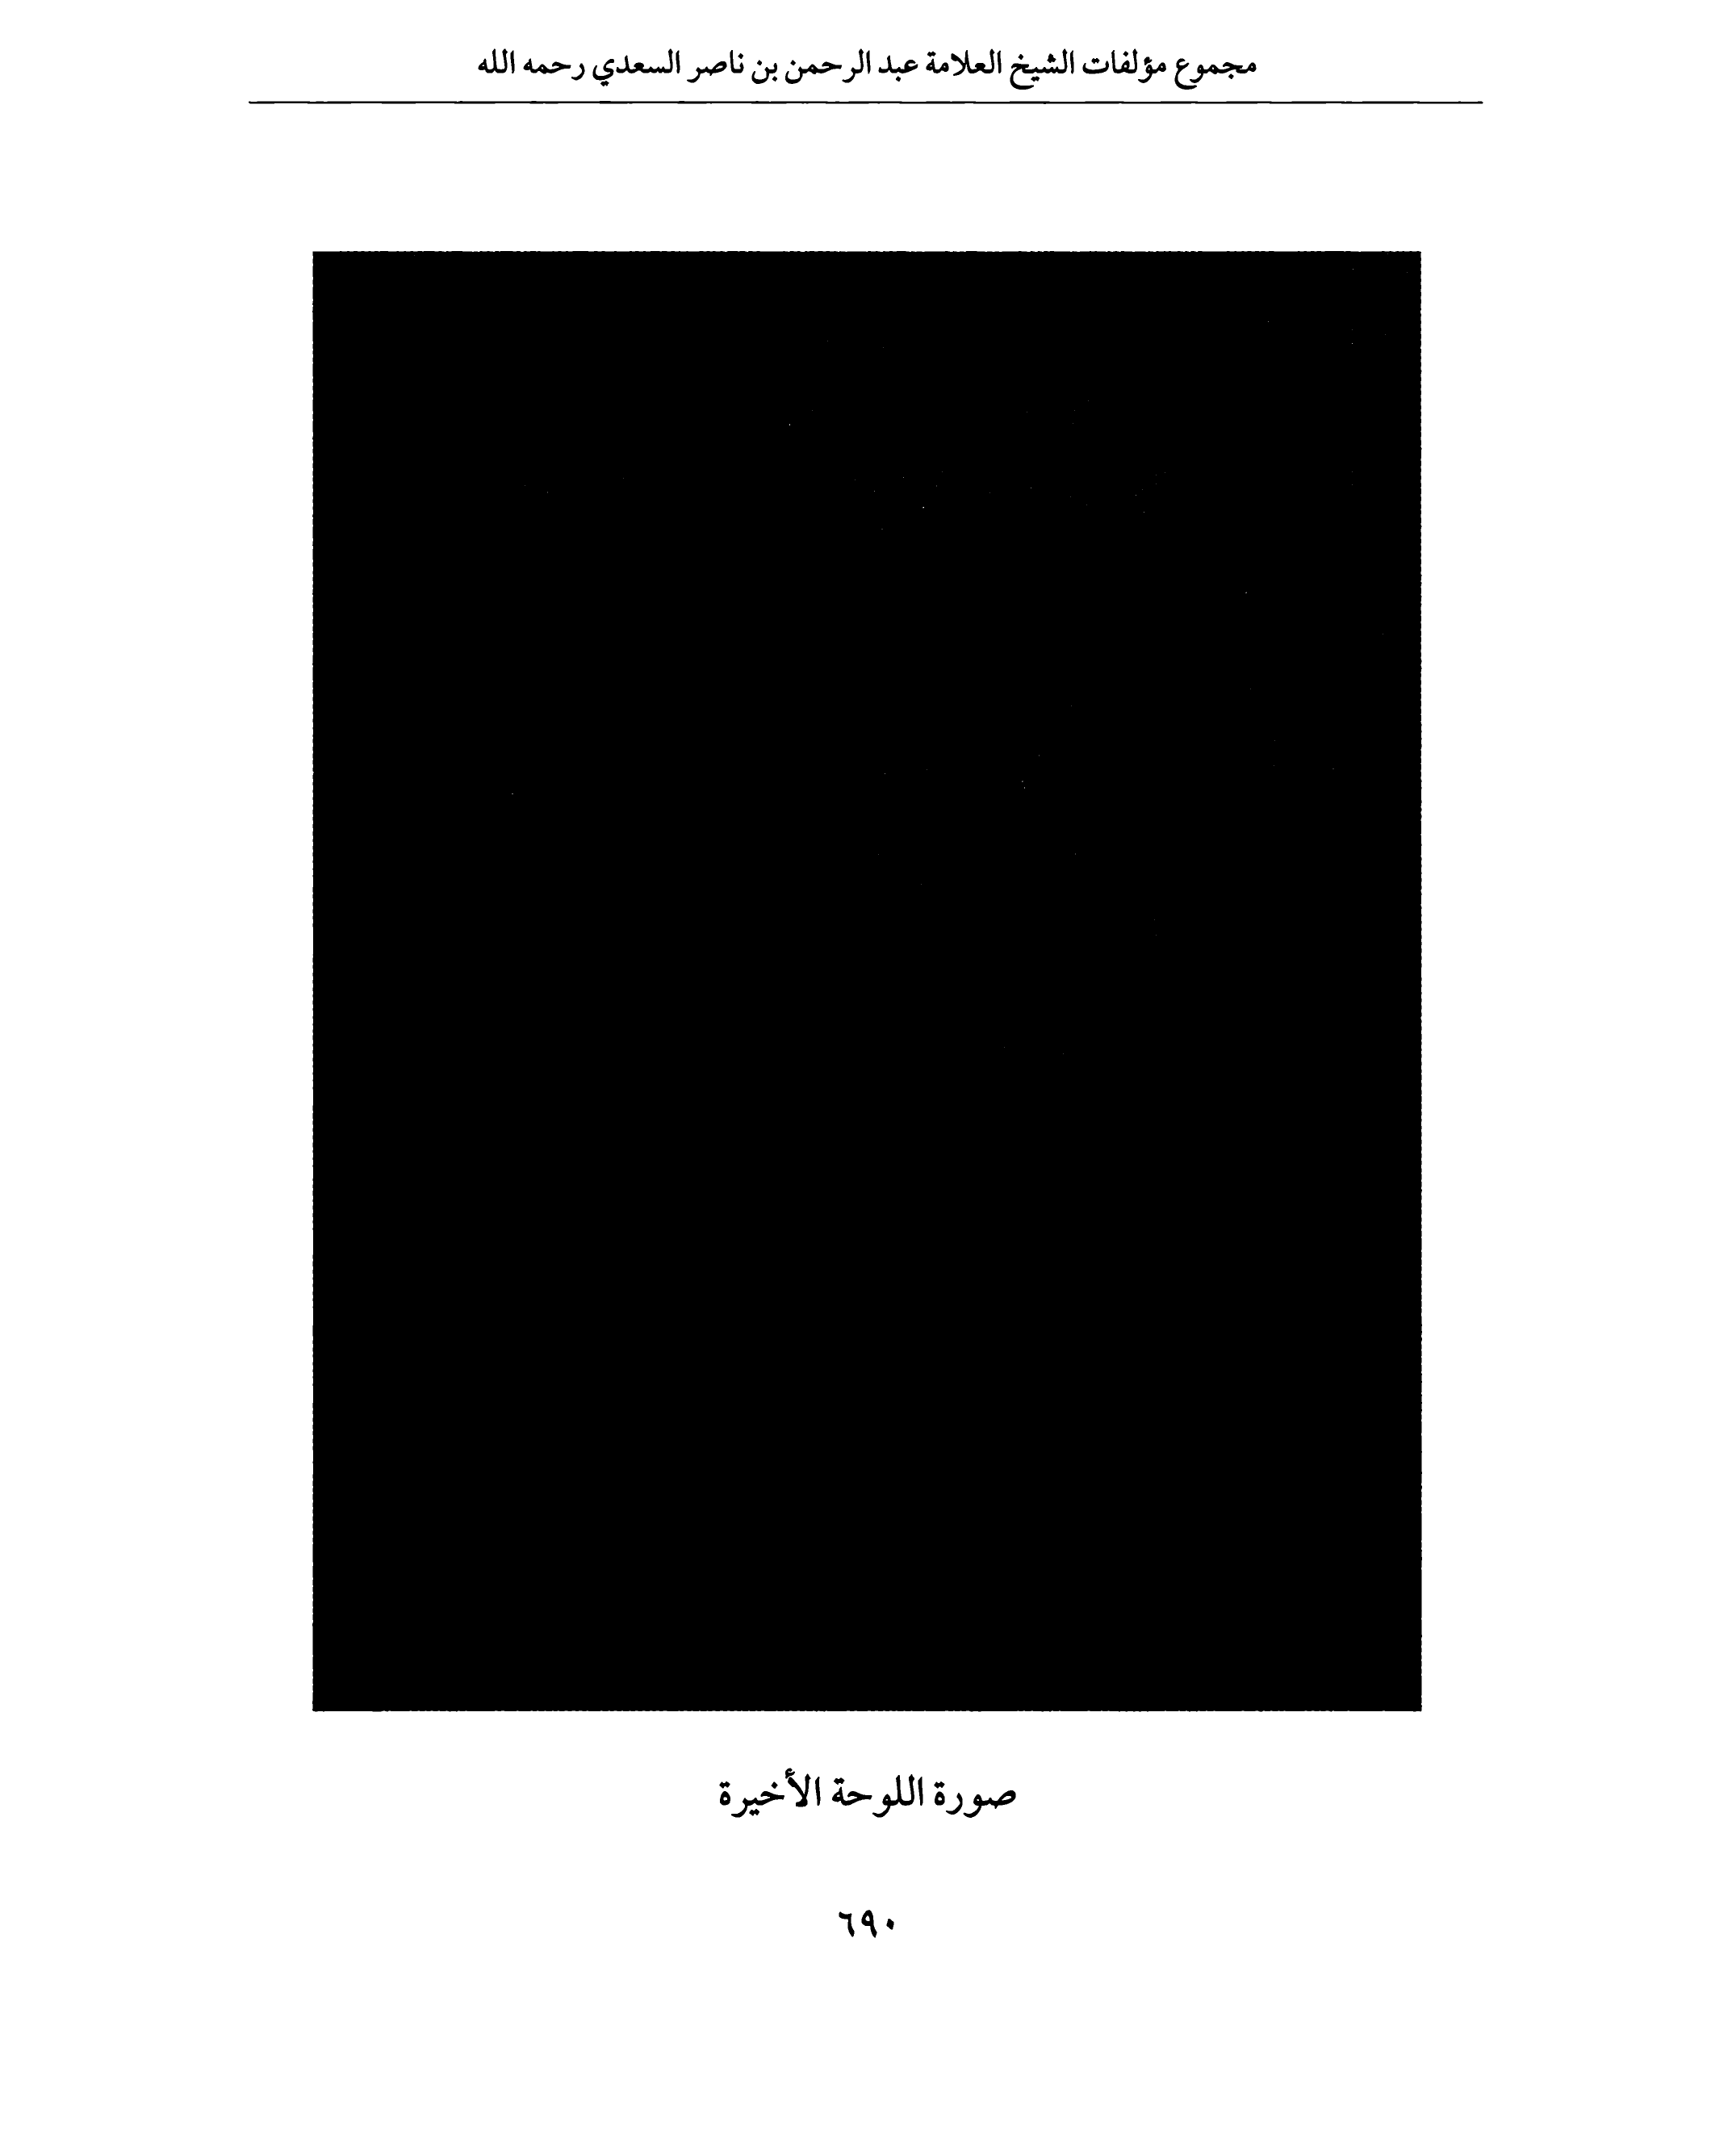 مجموع مؤلفات الشيخ العلامة عبد الرحمن بن ناصر السعدي رحمه الله
صورة اللوحة الأخيرة
٦٩٠